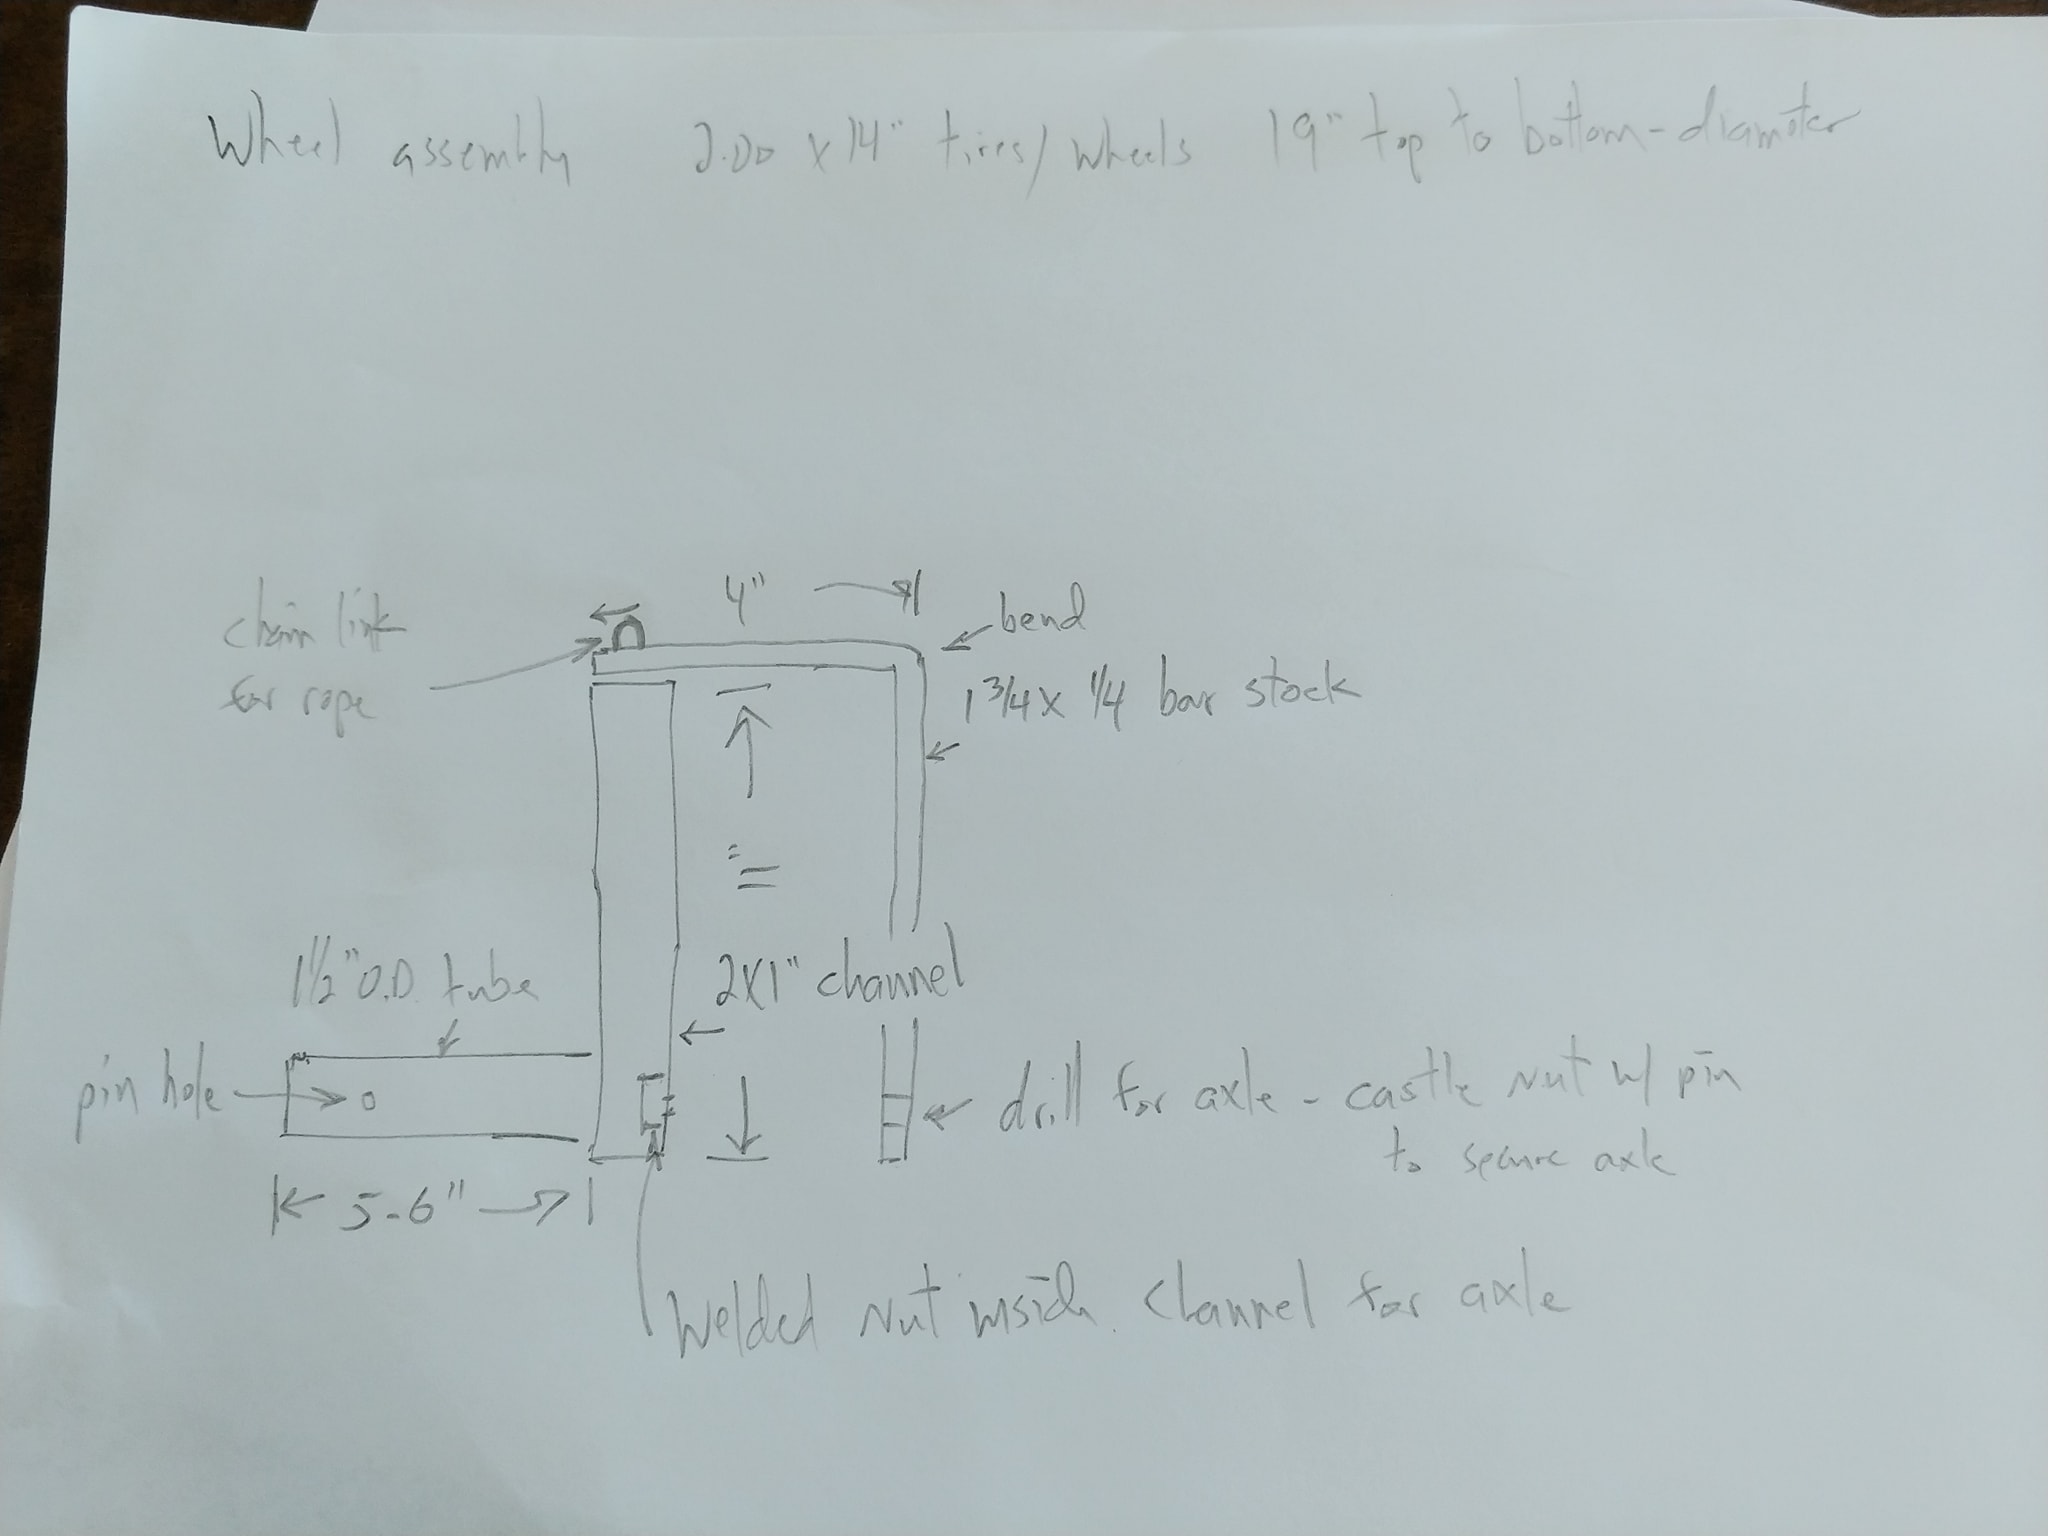 Wheel assembly 2.00 x 14" tires/wheels 19" top to bottom-diameter
4"
bend
chain link
for rope
1 3/4 x 1/4 bar stock
1 1/2" O.D. tube
2X1" channel
pin hole
drill for axle - castle nut w/ pin
to secure axle
5-6"
Welded nut inside channel for axle